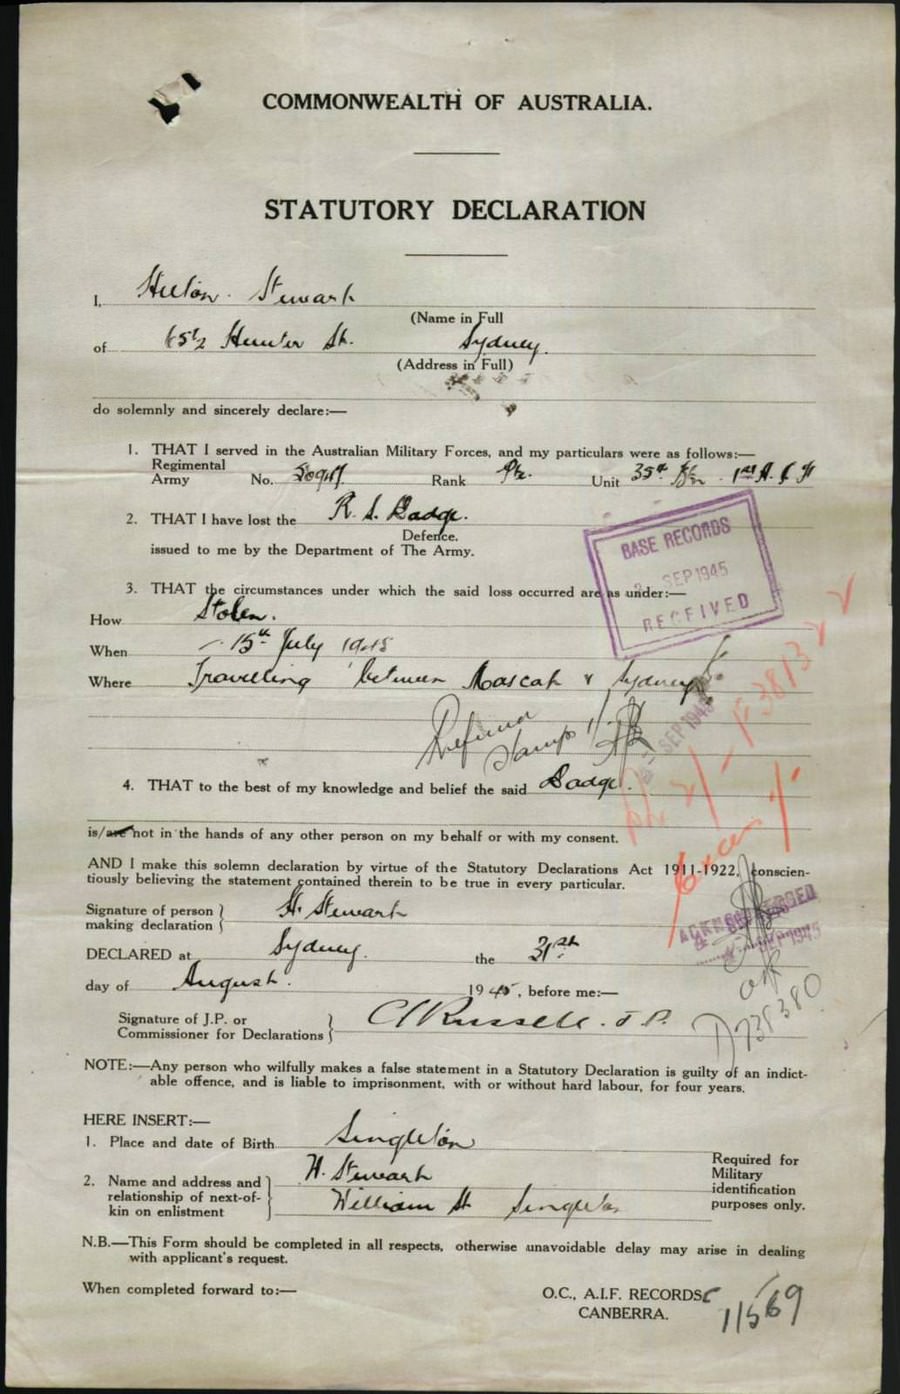 COMMONWEALTH OF AUSTRALIA.
STATUTORY DECLARATION
I, Hilton Stewart
(Name in Full
of 65½ Hunter St. Sydney.
(Address in Full)
do solemnly and sincerely declare:—
1. THAT I served in the Australian Military Forces, and my particulars were as follows:—
Regimental
Army No. Rank Pte. Unit 35th Bn. 1st A.I.F
2. THAT I have lost the R. S. Badge.
Defence.
issued to me by the Department of The Army.
3. THAT the circumstances under which the said loss occurred are as under:—
How Stolen.
When 15th July 1945
Where Travelling between Mascot & Sydney
BASE RECORDS
SEP 1945
RECEIVED
Refund
stamps
4. THAT to the best of my knowledge and belief the said Badge.
is/are not in the hands of any other person on my behalf or with my consent.
AND I make this solemn declaration by virtue of the Statutory Declarations Act 1911-1922, conscien-
tiously believing the statement contained therein to be true in every particular.
Signature of person
making declaration H. Stewart
ACKNOWLEDGED
SEP 1945
DECLARED at Sydney. the 31st
day of August. 1945, before me:—
Signature of J.P. or
Commissioner for Declarations C Russell. J.P.
D738380
NOTE:—Any person who wilfully makes a false statement in a Statutory Declaration is guilty of an indict-
able offence, and is liable to imprisonment, with or without hard labour, for four years.
HERE INSERT:—
1. Place and date of Birth Singleton
2. Name and address and
relationship of next-of-
kin on enlistment
H. Stewart
William St Singleton
Required for
Military
identification
purposes only.
N.B.—This Form should be completed in all respects, otherwise unavoidable delay may arise in dealing
with applicant's request.
When completed forward to:—
O.C., A.I.F. RECORDS
CANBERRA.
11569